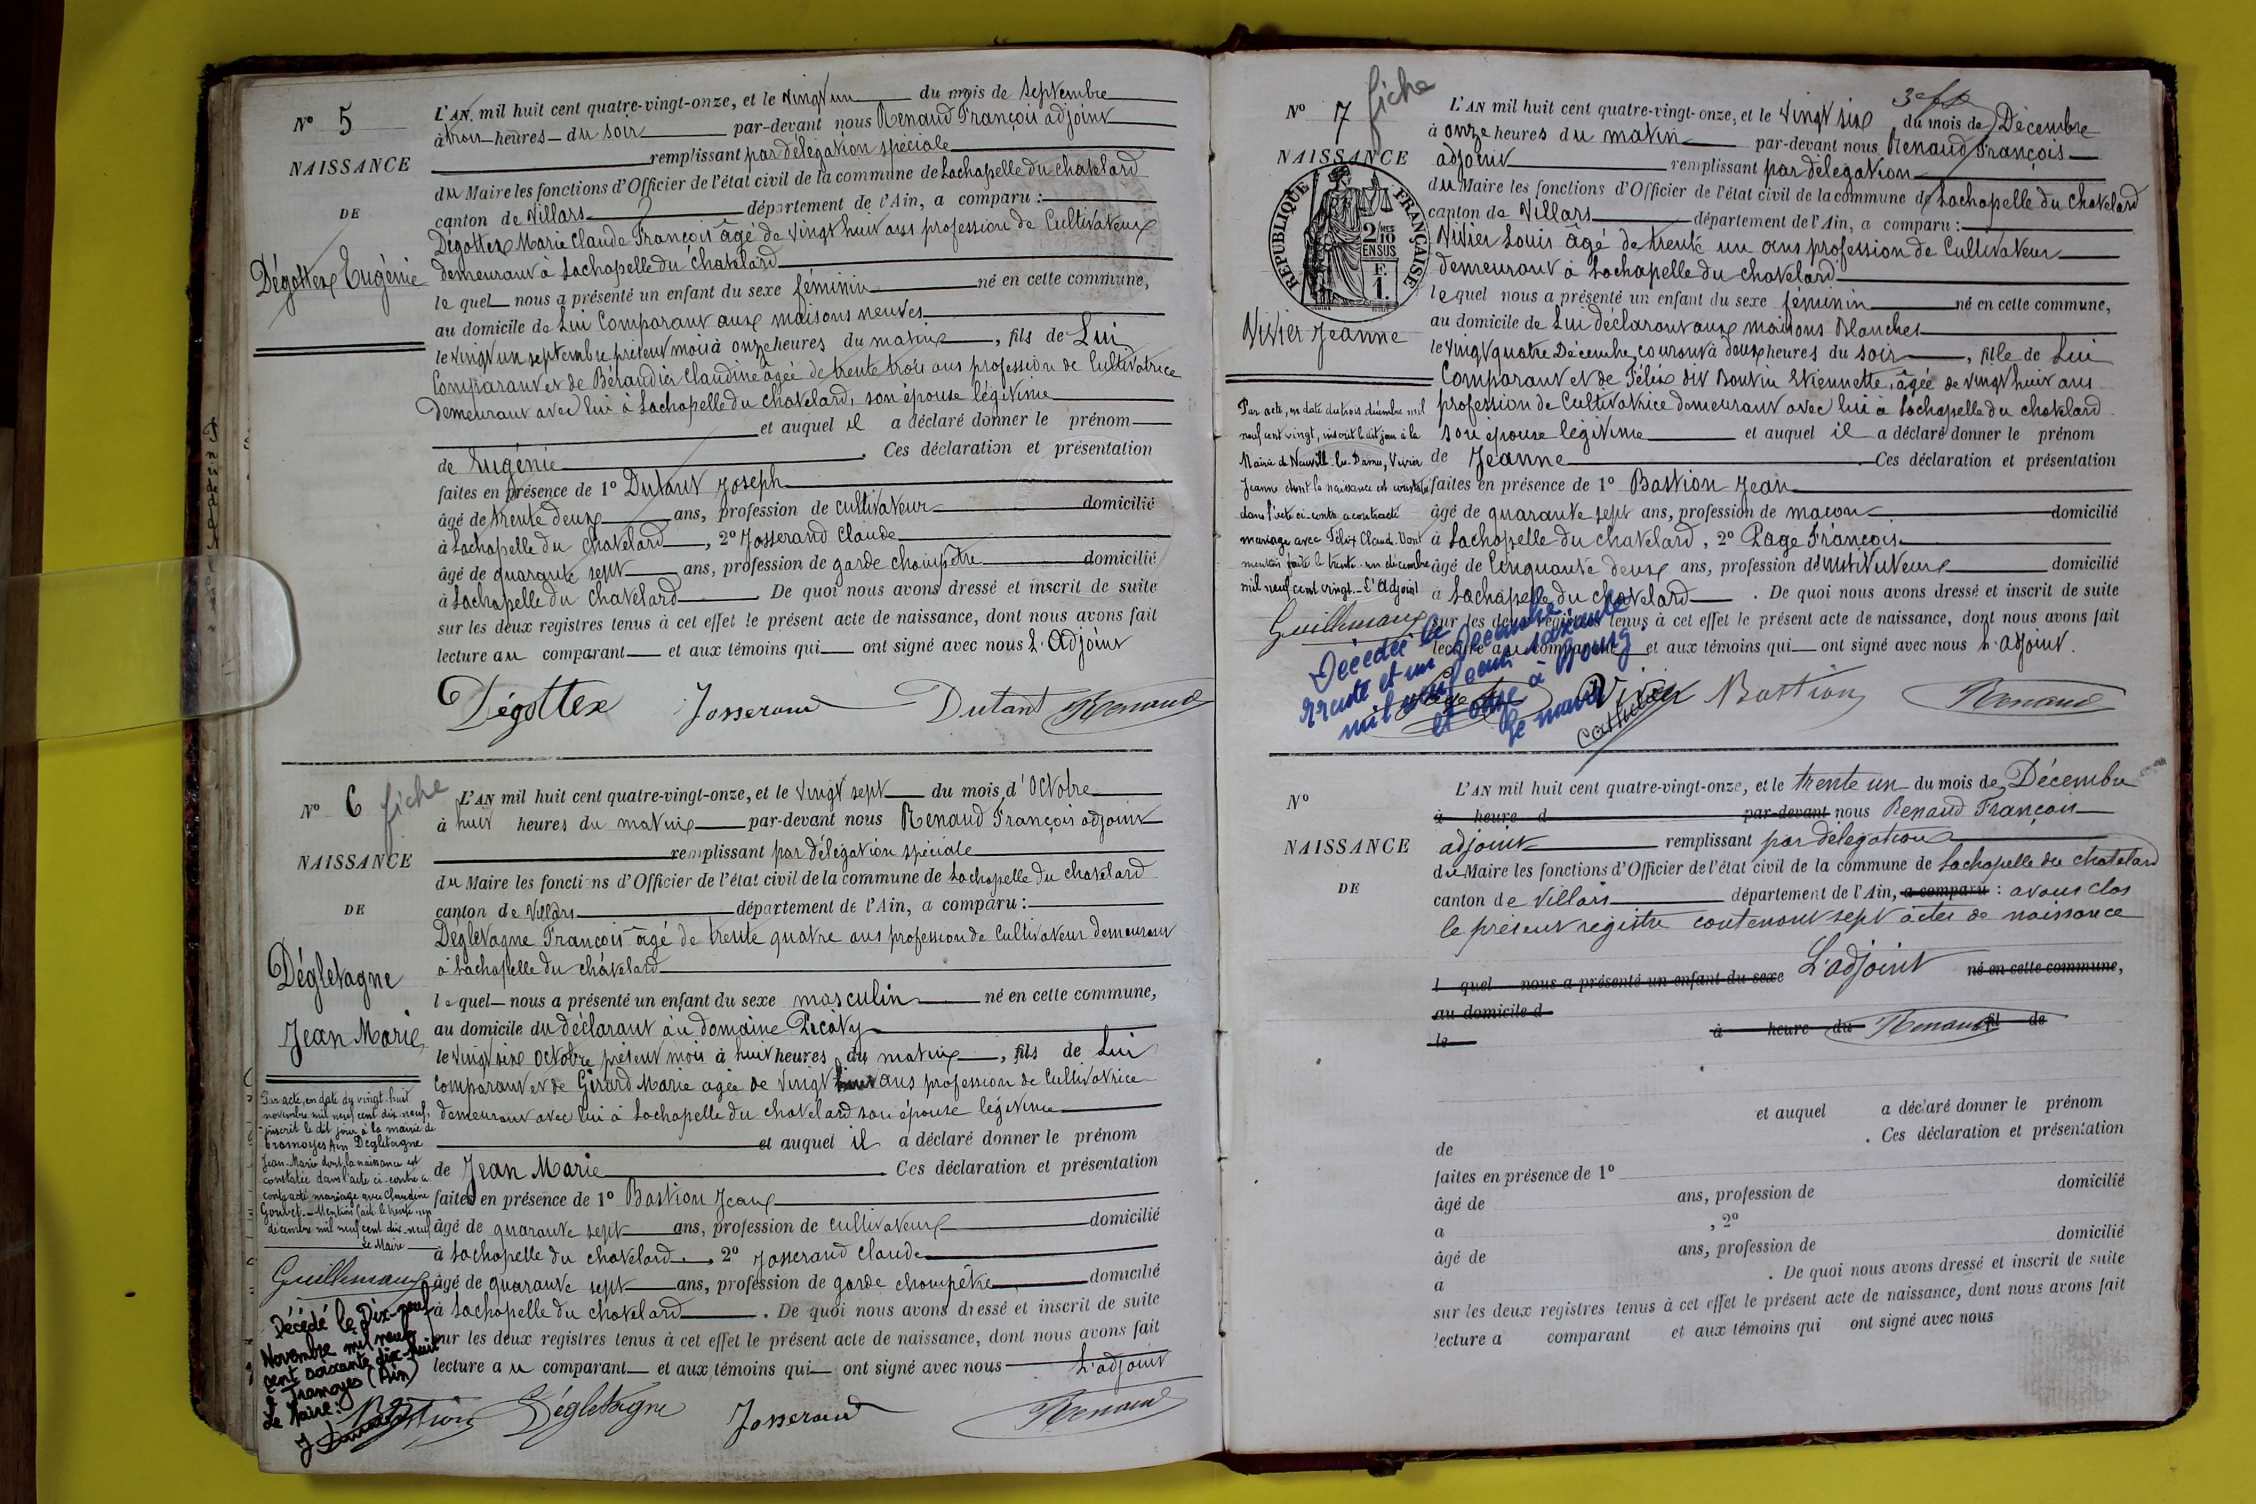 N° 5
NAISSANCE
DE
Dégottex Eugénie
L'AN mil huit cent quatre-vingt-onze, et le vingt un du mois de Septembre
à trois heures du soir par-devant nous Renaud François adjoint
remplissant par délégation spéciale
du Maire les fonctions d'Officier de l'état civil de la commune de Lachapelle du chatelard
canton de Villars département de l'Ain, a comparu :
Dégottex Marie Claude François âgé de vingt huit ans profession de Cultivateur
demeurant à Lachapelle du Chatelard
lequel nous a présenté un enfant du sexe féminin né en cette commune,
au domicile de Lui Comparant aux maisons neuves
le vingt un septembre présent mois à onze heures du matin, fils de Lui
Comparant et de Béraudier Claudine âgée de trente trois ans profession de Cultivatrice
demeurant avec lui à Lachapelle du Chatelard, son épouse légitime
et auquel il a déclaré donner le prénom
de Eugénie. Ces déclaration et présentation
faites en présence de 1° Dutant Joseph
âgé de trente deux ans, profession de cultivateur domicilié
à Lachapelle du Chatelard, 2° Josserand Claude
âgé de quarante sept ans, profession de garde champêtre domicilié
à Lachapelle du Chatelard. De quoi nous avons dressé et inscrit de suite
sur les deux registres tenus à cet effet le présent acte de naissance, dont nous avons fait
lecture au comparant et aux témoins qui ont signé avec nous L'Adjoint
Dégottex Josserand Dutant Renaud
N° 6 fiche
NAISSANCE
DE
Dégletagne
Jean Marie
Par acte, en date du vingt-huit
novembre mil neuf cent dix-neuf,
inscrit le dit jour à la mairie de
Tramoyes Ain Dégletagne
Jean-Marie dont la naissance est
constatée dans l'acte ci-contre a
contracté mariage avec Claudine
Gouvet. Mention faite le trente-un
décembre mil neuf cent dix-neuf
Le Maire
Guillemaux
Décédé le Dix-neuf
Novembre mil neuf
cent soixante dix-huit
à Tramoyes (Ain)
Le Maire :
L'AN mil huit cent quatre-vingt-onze, et le vingt sept du mois d'Octobre
à huit heures du matin par-devant nous Renaud François adjoint
remplissant par délégation spéciale
du Maire les fonctions d'Officier de l'état civil de la commune de Lachapelle du chatelard
canton de Villars département de l'Ain, a comparu :
Dégletagne François âgé de trente quatre ans profession de Cultivateur demeurant
à Lachapelle du châtelard
lequel nous a présenté un enfant du sexe masculin né en cette commune,
au domicile du déclarant au domaine Picaty
le vingt six Octobre présent mois à huit heures du matin, fils de Lui
comparant et de Girard Marie agée de vingt ans profession de Cultivatrice
demeurant avec lui à Lachapelle du chatelard son épouse légitime
et auquel il a déclaré donner le prénom
de Jean Marie. Ces déclaration et présentation
faites en présence de 1° Bastion Jean
âgé de quarante sept ans, profession de cultivateur domicilié
à Lachapelle du chatelard, 2° Josserand Claude
âgé de quarante sept ans, profession de garde champêtre domicilié
à Lachapelle du chatelard. De quoi nous avons dressé et inscrit de suite
sur les deux registres tenus à cet effet le présent acte de naissance, dont nous avons fait
lecture au comparant et aux témoins qui ont signé avec nous L'adjoint
Bastion Dégletagne Josserand Renaud
N° 7 fiche
NAISSANCE
RÉPUBLIQUE FRANÇAISE
2/10 EN SUS
F. 1.
Vivier Jeanne
Par acte, en date du trois décembre mil
neuf cent vingt, inscrit ledit jour à la
Mairie de Neuville-les-Dames, Vivier
Jeanne dont la naissance est constatée
dans l'acte ci-contre a contracté
mariage avec Félix Claude. Dont
mention faite le trente-un décembre
mil neuf cent vingt. L'Adjoint
Guillemaux
Décédée le
trente et un Décembre
mil neuf cent soixante
et onze à Bourg.
Le maire
L'AN mil huit cent quatre-vingt-onze, et le vingt six du mois de Décembre
à onze heures du matin par-devant nous Renaud François
adjoint remplissant par délégation
du Maire les fonctions d'Officier de l'état civil de la commune de Lachapelle du Chatelard
canton de Villars département de l'Ain, a comparu :
Vivier Louis âgé de trente un ans profession de Cultivateur
demeurant à Lachapelle du chatelard
lequel nous a présenté un enfant du sexe féminin né en cette commune,
au domicile de Lui déclarant aux maisons Blanches
le vingt quatre Décembre courant à deux heures du soir, fille de Lui
Comparant et de Félix dit Boutin Etiennette, âgée de vingt huit ans
profession de Cultivatrice demeurant avec lui à Lachapelle du chatelard
son épouse légitime et auquel il a déclaré donner le prénom
de Jeanne. Ces déclaration et présentation
faites en présence de 1° Bastion Jean
âgé de quarante sept ans, profession de macon domicilié
à Lachapelle du chatelard, 2° Page François
âgé de Cinquante deux ans, profession d'instituteur domicilié
à Lachapelle du chatelard. De quoi nous avons dressé et inscrit de suite
sur les deux registres tenus à cet effet le présent acte de naissance, dont nous avons fait
lecture au comparant et aux témoins qui ont signé avec nous L'adjoint.
Page Vivier Bastion Renaud
N°
NAISSANCE
DE
L'AN mil huit cent quatre-vingt-onze, et le trente un du mois de Décembre
à heure d par-devant nous Renaud François
adjoint remplissant par délégation
du Maire les fonctions d'Officier de l'état civil de la commune de Lachapelle du chatelard
canton de Villars département de l'Ain, a comparu : avons clos
le présent registre contenant sept actes de naissance
L'adjoint
l quel nous a présenté un enfant du sexe né en cette commune,
au domicile d
le à heure du Renaud fil de
et auquel a déclaré donner le prénom
de . Ces déclaration et présentation
faites en présence de 1°
âgé de ans, profession de domicilié
à , 2°
âgé de ans, profession de domicilié
à . De quoi nous avons dressé et inscrit de suite
sur les deux registres tenus à cet effet le présent acte de naissance, dont nous avons fait
lecture a comparant et aux témoins qui ont signé avec nous